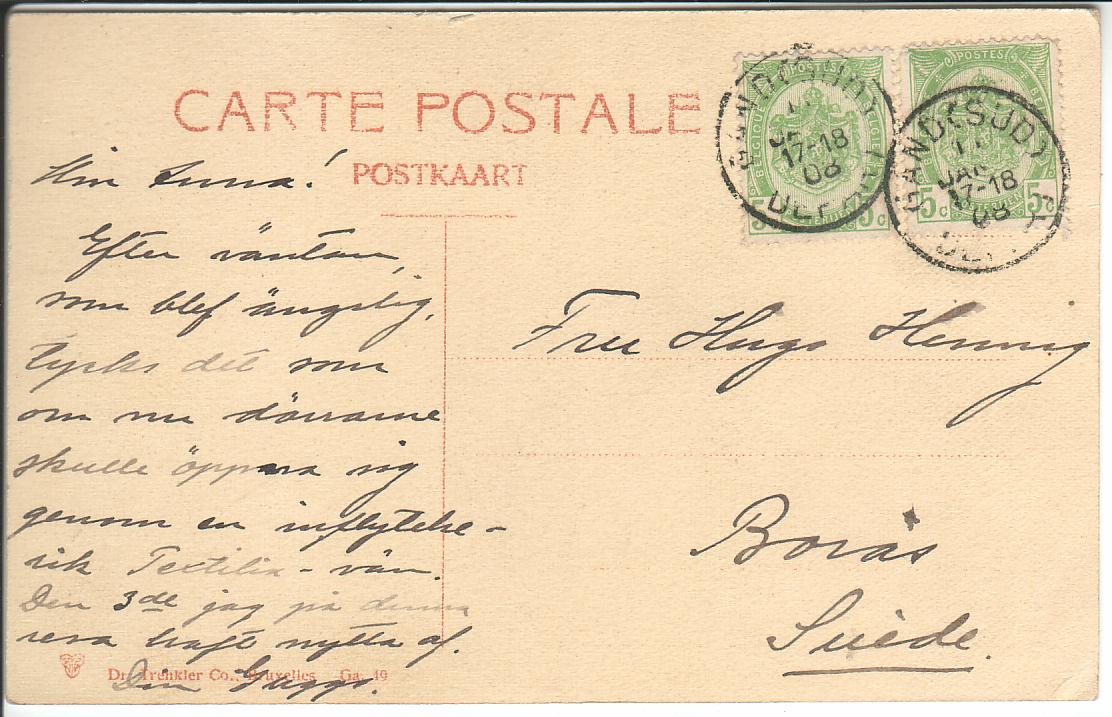 CARTE POSTALE
POSTKAART
Min Anna!
Efter väntan,
som blef ängslig,
tyckes det som
om nu dörrarne
skulle öppna sig
genom en inflytelse-
rik Textilia-vän.
Den 3de jag på denna
resa haft nytta af.
Din
Fru Hugo Hennig
Borås
Suède.
POSTES
BELGIQUE
5c 5c
GAND (SUD)
17-18
08
POSTES
5c 5c
GAND (SUD)
JAN
17-18
08
Dr. Trenkler Co., Bruxelles Ga. 49